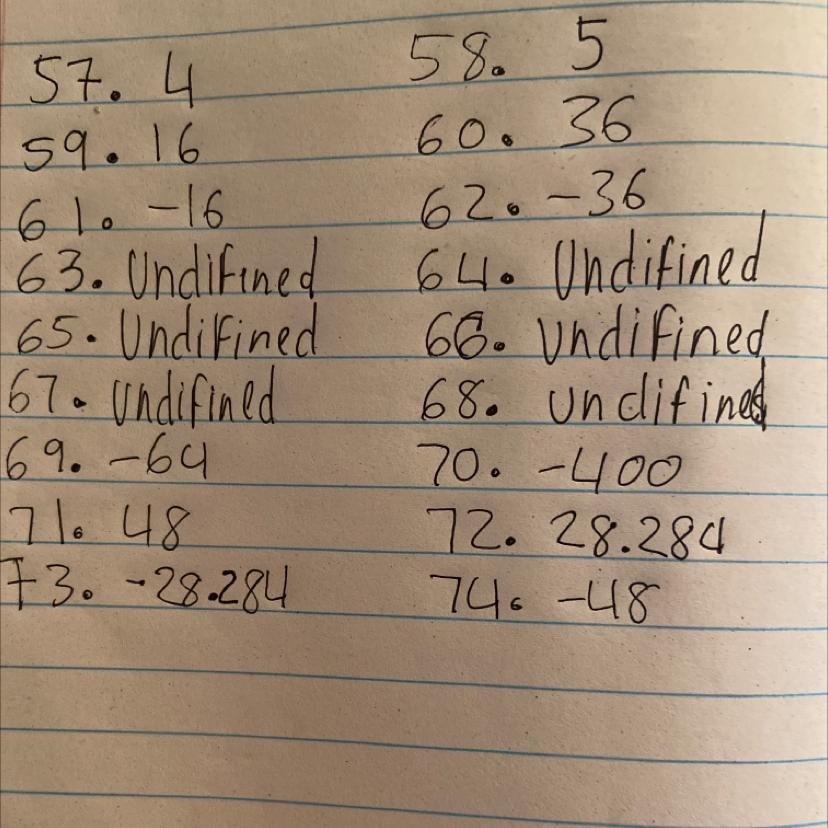 57. 4 58. 5
59. 16 60. 36
61. -16 62. -36
63. Undifined 64. Undifined
65. Undifined 66. Undifined
67. Undifined 68. undifined
69. -64 70. -400
71. 48 72. 28.284
73. -28.284 74. -48